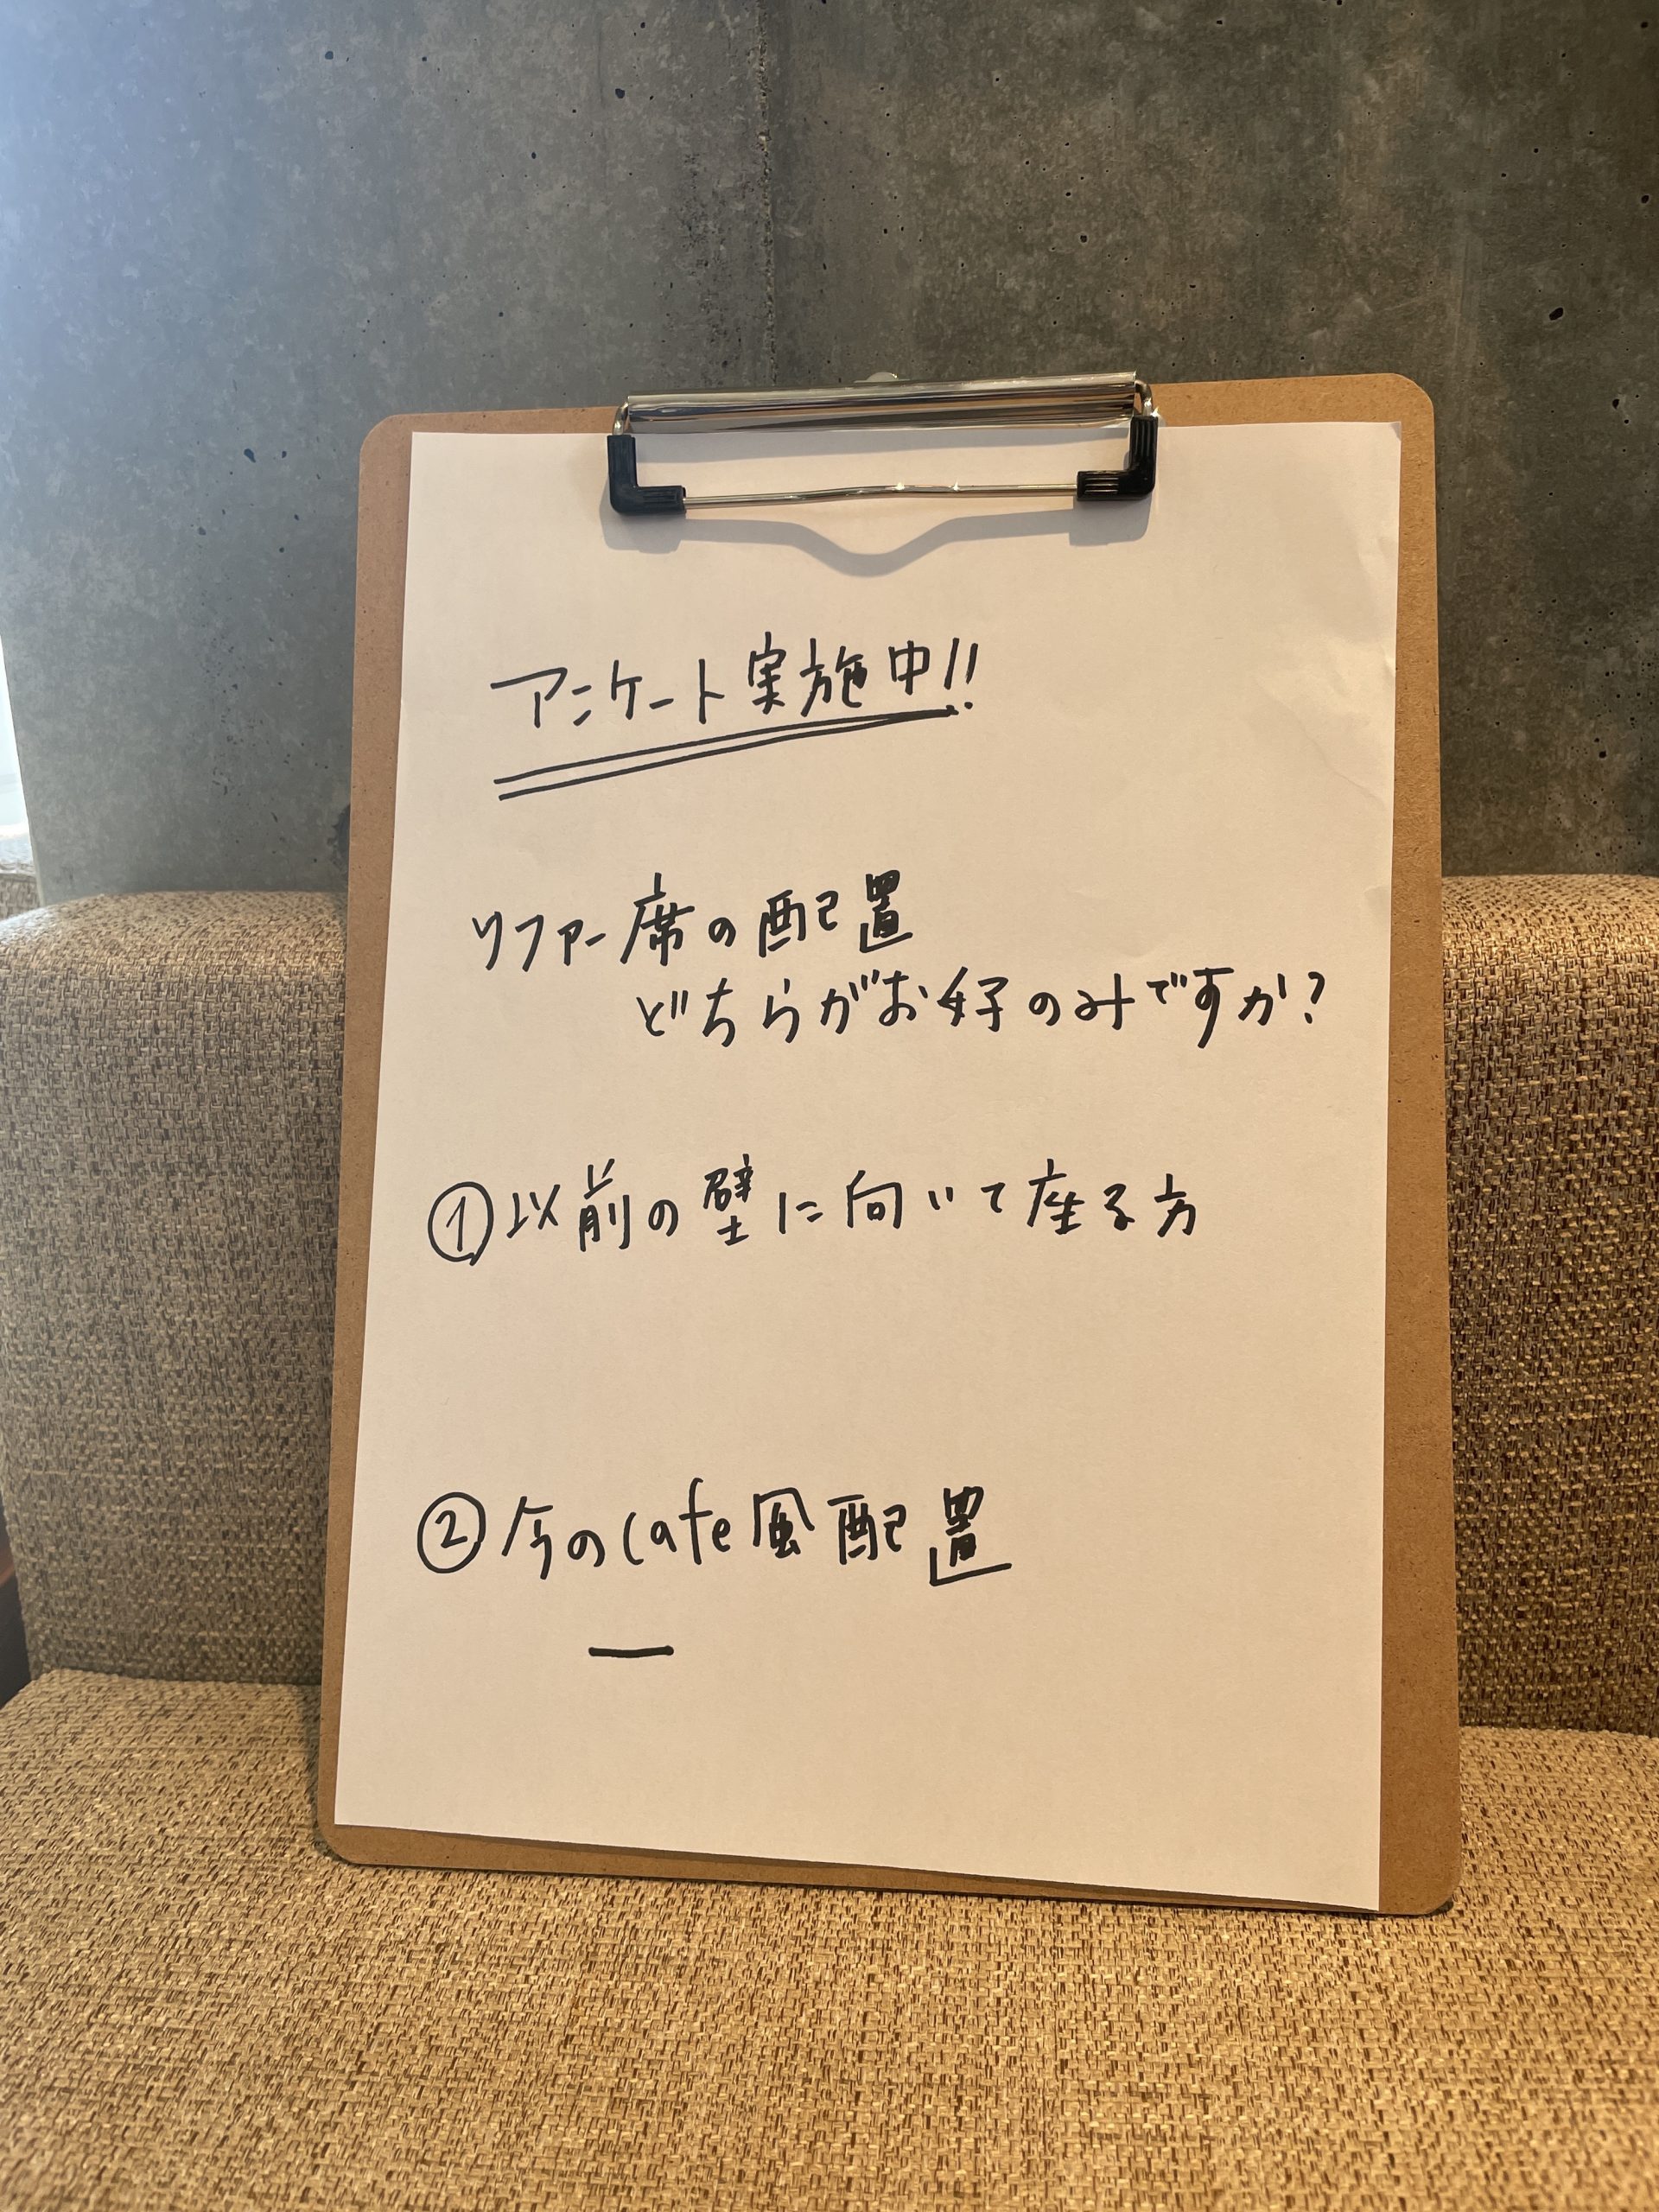 アンケート実施中!!
ソファー席の配置
どちらがお好のみですか?
①以前の壁に向いて座る方
②今のcafe風配置
一